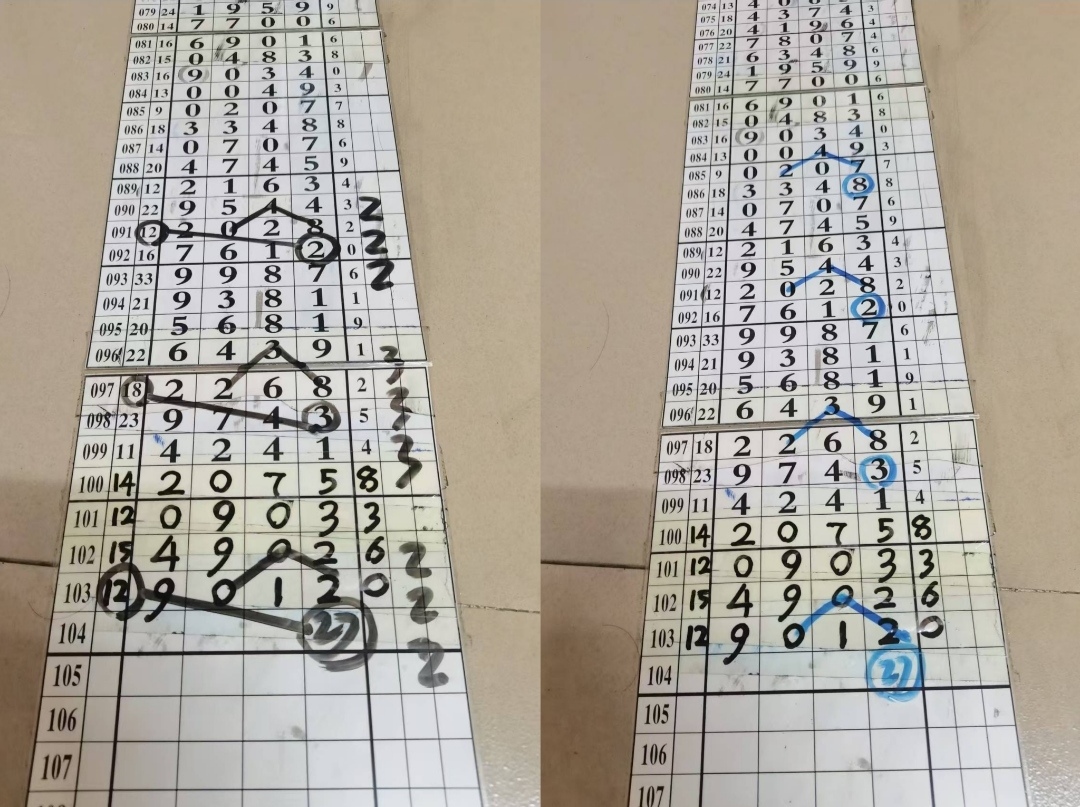 079 24 1 9 5 9 9
080 14 7 7 0 0
081 16 6 9 0 1 6
082 15 0 4 8 3 8
083 16 9 0 3 4 0
084 13 0 0 4 9 3
085 9 0 2 0 7 7
086 18 3 3 4 8 8
087 14 0 7 0 7 6
088 20 4 7 4 5 9
089 12 2 1 6 3 4
090 22 9 5 4 4 3 2
091 12 2 0 2 8 2 2
092 16 7 6 1 2 0 2
093 33 9 9 8 7 6
094 21 9 3 8 1 1
095 20 5 6 8 1 9
096 22 6 4 3 9 1 3
097 18 2 2 6 8 2 3
098 23 9 7 4 3 5
099 11 4 2 4 1 4 3
100 14 2 0 7 5 8
101 12 0 9 0 3 3
102 15 4 9 0 2 6 2
103 12 9 0 1 2 0 2
104 27 2
105
106
107
074 13 4
075 18 4 3 7 4 3
076 20 4 1 9 6 4
077 22 7 8 0 7 4
078 21 6 3 4 8 6
079 24 1 9 5 9 9
080 14 7 7 0 0 6
081 16 6 9 0 1 6
082 15 0 4 8 3 8
083 16 9 0 3 4 0
084 13 0 0 4 9 3
085 9 0 2 0 7 7
086 18 3 3 4 8 8
087 14 0 7 0 7 6
088 20 4 7 4 5 9
089 12 2 1 6 3 4
090 22 9 5 4 4 3
091 12 2 0 2 8 2
092 16 7 6 1 2 0
093 33 9 9 8 7 6
094 21 9 3 8 1 1
095 20 5 6 8 1 9
096 22 6 4 3 9 1
097 18 2 2 6 8 2
098 23 9 7 4 3 5
099 11 4 2 4 1 4
100 14 2 0 7 5 8
101 12 0 9 0 3 3
102 15 4 9 0 2 6
103 12 9 0 1 2 0
104 27
105
106
107